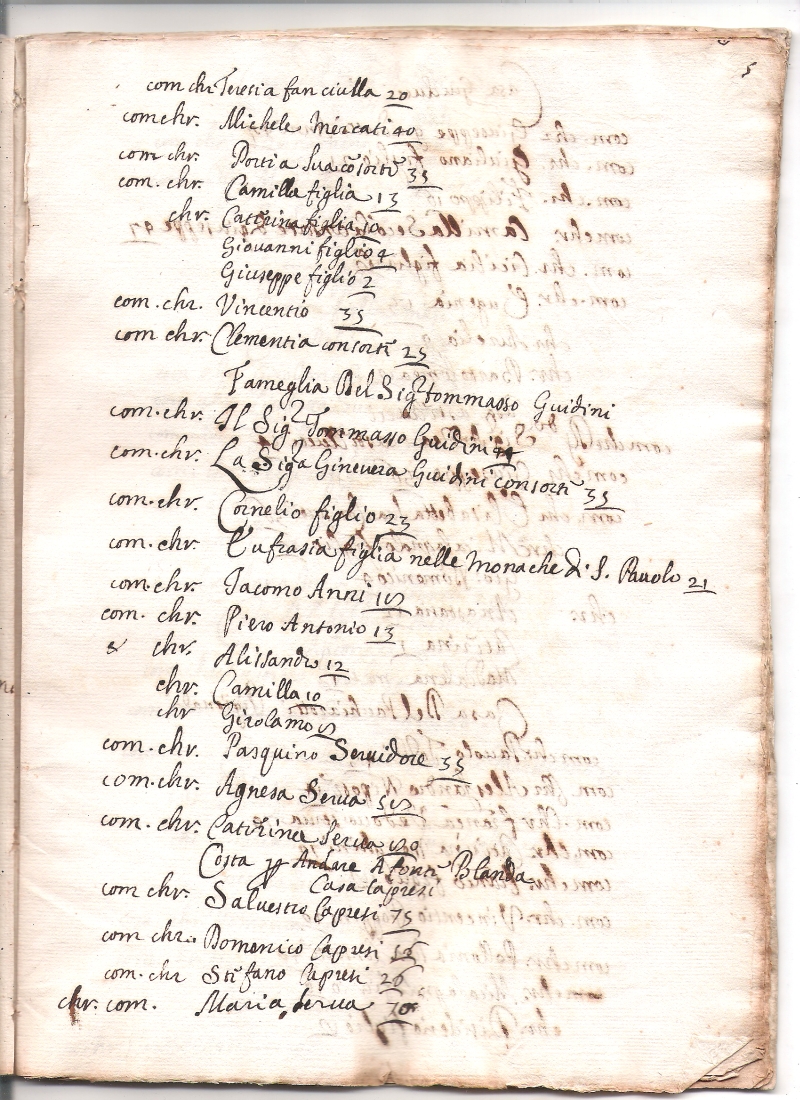 5
com chr Teresia fanciulla 20
com chr. Michele Mercati 40
com chr. Portia sua consorte 35
com. chr. Camilla figlia 13
chr. Catterina figlia 10
Giovanni figlio 4
Giuseppe figlio 2
com. chr. Vincentio 35
com chr. Clementia consorte 25
Fameglia Del Sigr Tommasso Guidini
com. chr. Il Sigr Tommasso Guidini 44
com. chr. La Siga Ginevera Guidini consorte 35
com. chr. Cornelio figlio 23
com. chr. Eufrasia figlia nelle Monache di S. Pauolo 21
com. chr. Iacomo Anni
com. chr. Piero Antonio 13
chr. Alissandro 12
chr. Camilla 10
chr Girolamo
com. chr. Pasquino Servidore 35
com. chr. Agnesa Serua
com. chr. Catirina Serua
Costa per Andare A fonte Blanda
Casa Capresi
com chr. Salvestro Capresi 75
com chr. Domenico Capresi
com. chr Stefano Capresi 26
chr. com. Maria serua 70